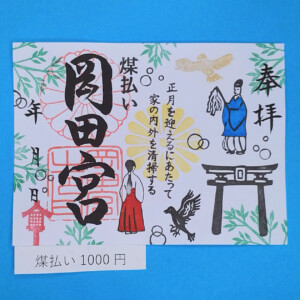 奉拝
正月を迎えるにあたって
家の内外を清掃する
煤払い
岡田宮
年 月 日
煤払い 1000 円